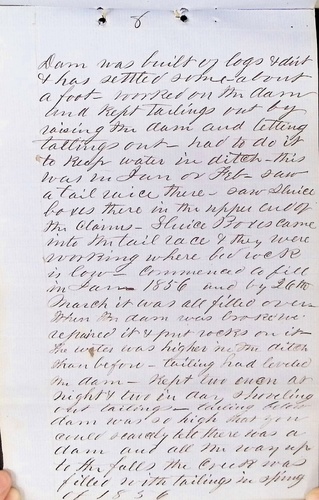 8
Dam was built of logs & dirt
& has settled some - about
a foot - worked on the dam
and kept tailings out by
raising the dam and letting
tailings out - had to do it
to keep water in ditch - this
was in Jan or Feb - saw
a tail raice there - saw sluice
boxes there in the upper end of
the claims - Sluice Boxes came
into the tail race & they were
working where bed rock
is low - commenced to fill
in Jan 1856 and by 26th
March it was all filled over
When the dam was broke we
repaired it & put rocks on it -
the water was higher in the ditch
than before - tailing had leveled
the dam - Kept two men at
night & two in day shoveling
out tailings - tailing below
dam was so high that you
could scarcely tell there was a
dam and all the way up
to the falls the Creek was
filled with tailings in spring
of 1856